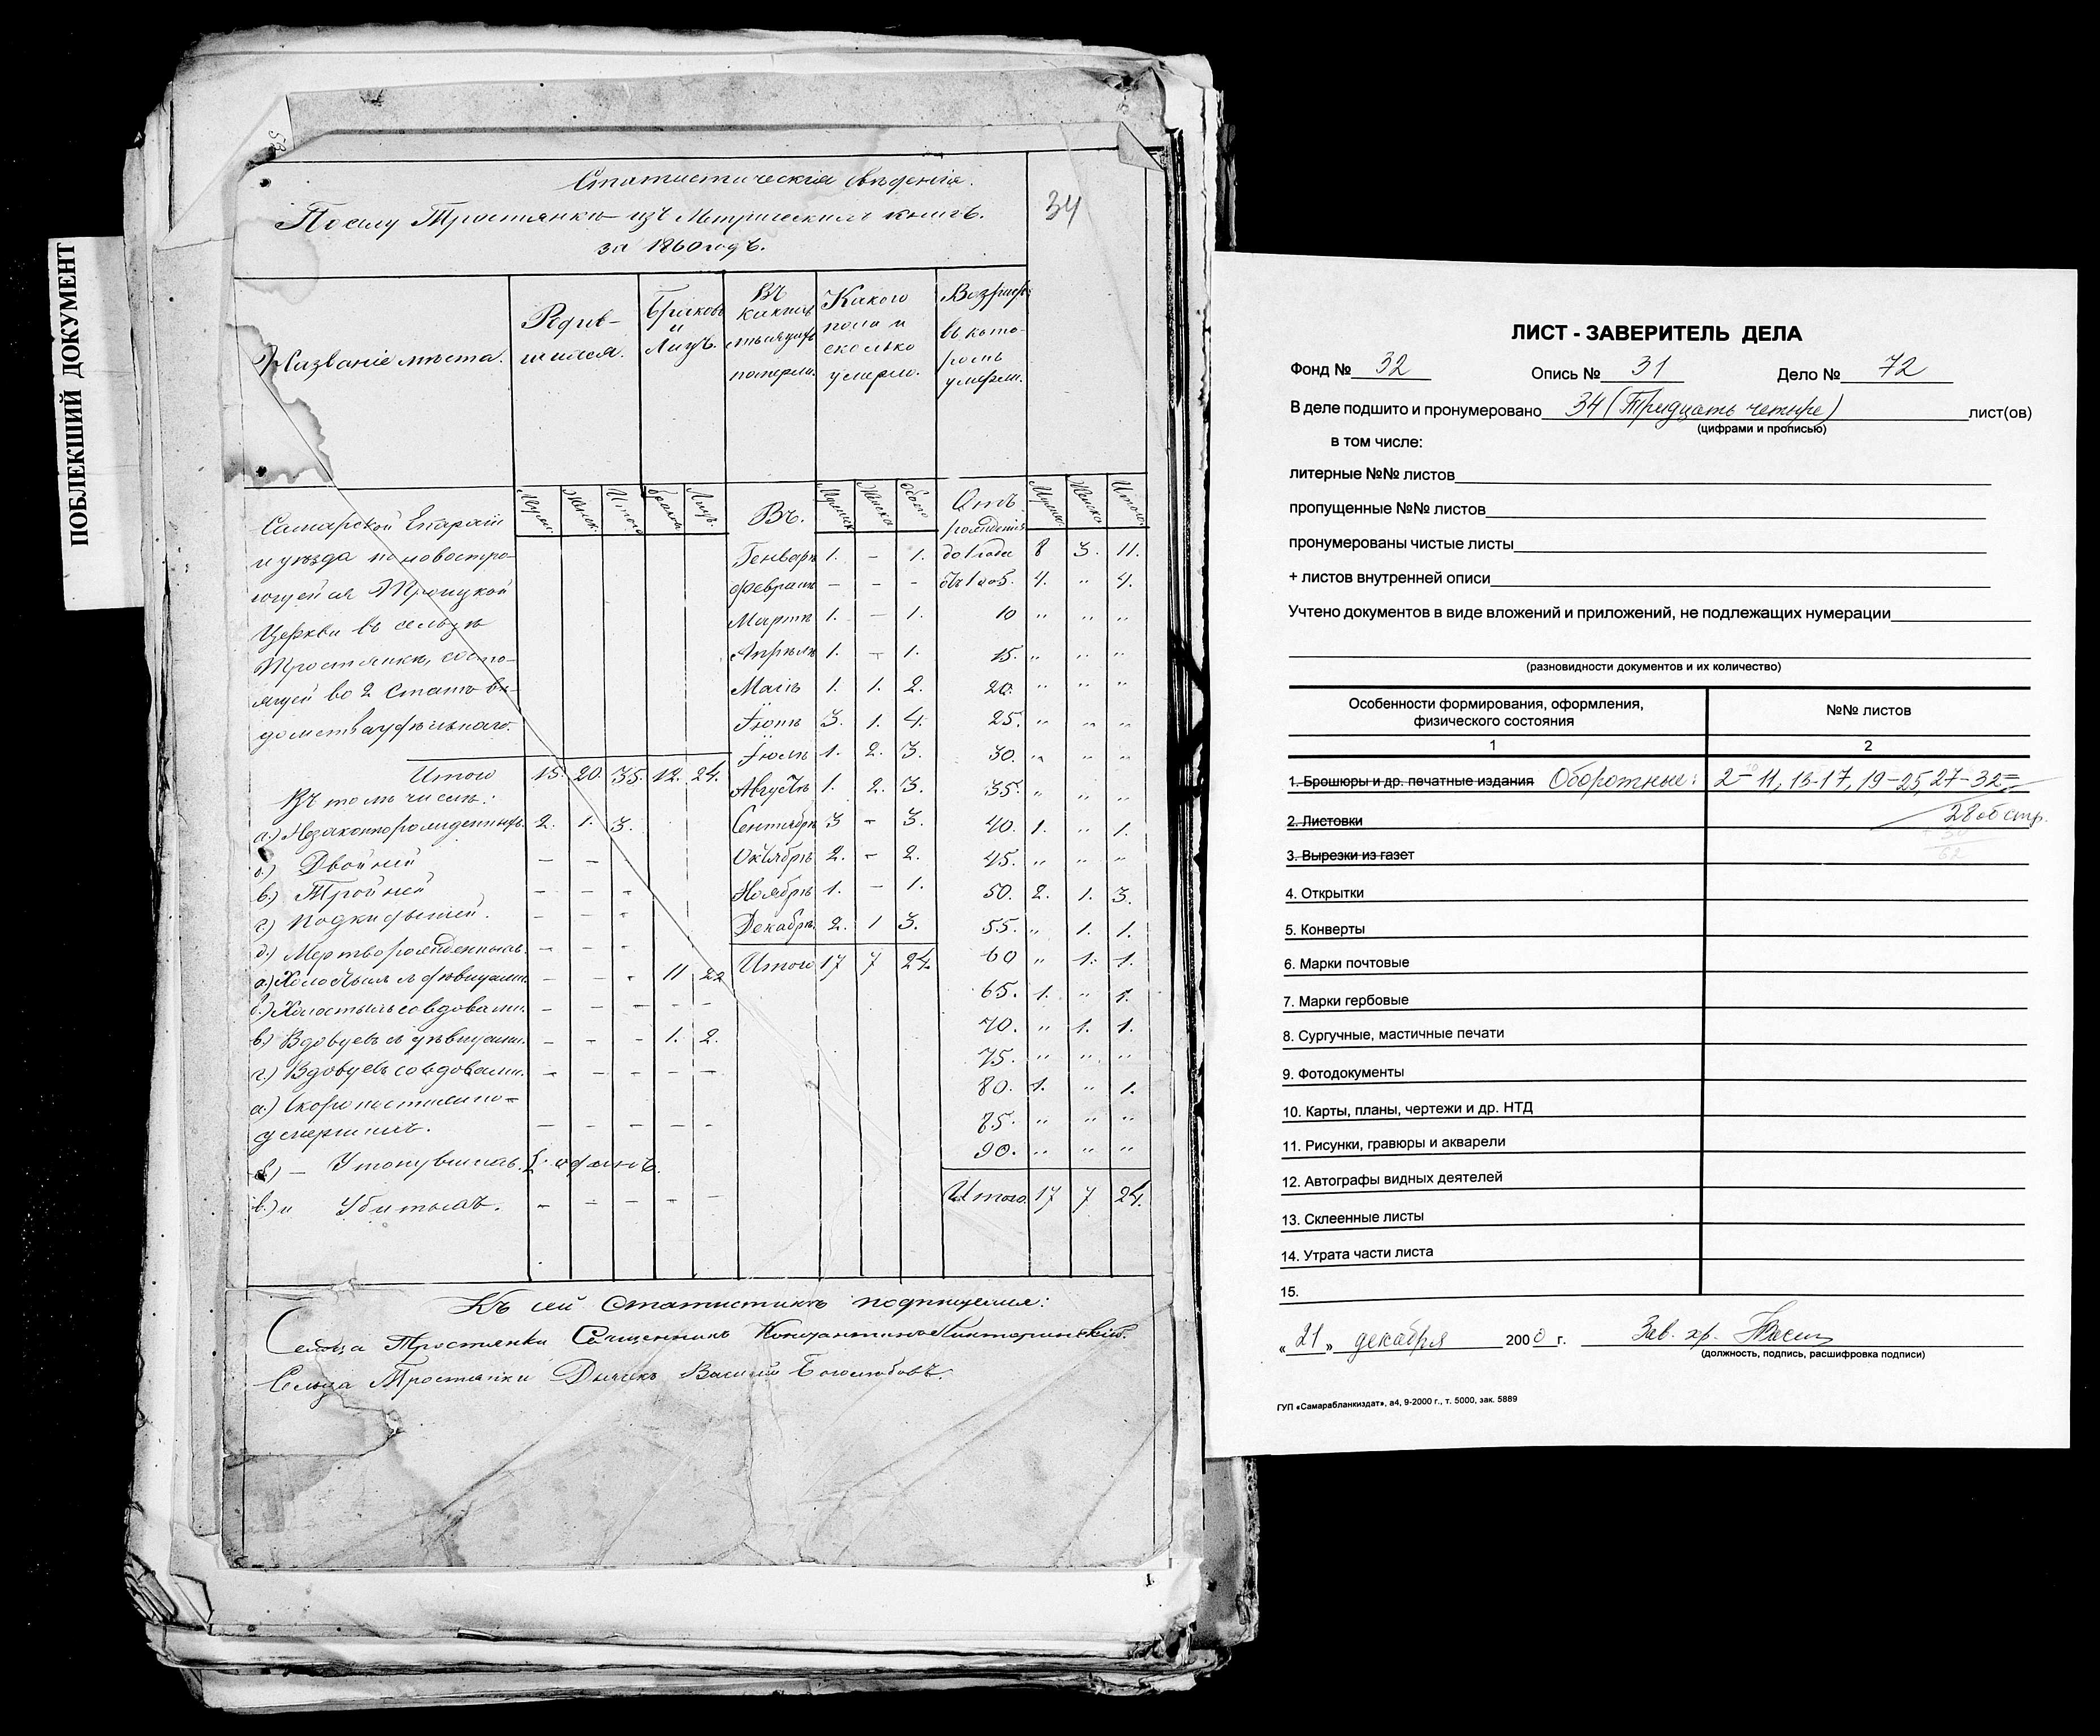 ПОБЛЕКШИЙ ДОКУМЕНТ
Статистическiя сведенiя.
По селу Тростянки изъ Метрическихъ книгъ.
за 1860 годъ.
34
Названiе места.
Родив-
шихся.
Браковъ
и
Лицъ.
Въ
какихъ
месяцахъ
померли.
Какого
пола и
сколько
умерло.
Возрастъ
въ кото-
ромъ
умерли.
Муж. Женск. Итого браков Лицъ. Въ. Мужск. Женска обоего Отъ рожденiя Мужск. Женска Итого.
Самарской Епархiи
и уезда по новостро-
ющейся Троицкой
Церкви въ сельце
Тростянки, состо-
ящей во 2 Стате ве-
домства удельнаго.
Генваре 1. - 1. до 1 года 8 3. 11.
Феврале - - - Отъ 1 до 5. 4. " 4.
Марте 1. - 1. 10 " " "
Апреле 1. - 1. 15. " " "
Маiе 1. 1. 2. 20. " " "
Iюне 3. 1. 4. 25. " " "
Iюле 1. 2. 3. 30. " " "
Итого 15. 20. 35. 12. 24.
Августе 1. 2. 3. 35. " " "
Въ томъ числе:
а.) Незаконнорожденныхъ 2. 1. 3.
Сентябре 3 - 3. 40. 1. " 1.
б.) Двойней - -
Октябре 2. - 2. 45. " " "
в.) Тройней - - -
Ноябре 1. - 1. 50. 2. 1. 3.
г.) Подкидышей. - - -
Декабре 2. 1 3. 55. " 1. 1.
д.) Мертворожденныхъ. - -
Итого 17 7 24. 60 " 1. 1.
а.) Холостыхъ съ девицами. - - - 11 22
65. 1. " 1.
б.) Холостыхъ со вдовами. - - - - -
70. " 1. 1.
в.) Вдовцевъ съ девицами. - - - 1. 2.
75. " " "
г.) Вдовцевъ со вдовами. - - - - -
80. 1. " 1.
а.) Скоропостижно-
умершихъ. - - - - -
85. " " "
б.) - Утонувшихъ. 1. одинъ.
90. " " "
в.) и Убитыхъ. - - - - -
Итого. 17 7 24.
Къ сей Статистике подписуемся:
Сельца Тростянки Священникъ
Сельца Тростянки Дьячекъ Василiй Боголюбовъ.
1.
ЛИСТ - ЗАВЕРИТЕЛЬ ДЕЛА
Фонд № 32 Опись № 31 Дело № 72
В деле подшито и пронумеровано 34 (Тридцать четыре) лист(ов)
(цифрами и прописью)
в том числе:
литерные №№ листов
пропущенные №№ листов
пронумерованы чистые листы
+ листов внутренней описи
Учтено документов в виде вложений и приложений, не подлежащих нумерации
(разновидности документов и их количество)
Особенности формирования, оформления,
физического состояния
№№ листов
1 2
1. Брошюры и др. печатные издания Оборотные: 2-11, 13-17, 19-25, 27-32=
2. Листовки 28 об стр.
3. Вырезки из газет
62
4. Открытки
5. Конверты
6. Марки почтовые
7. Марки гербовые
8. Сургучные, мастичные печати
9. Фотодокументы
10. Карты, планы, чертежи и др. НТД
11. Рисунки, гравюры и акварели
12. Автографы видных деятелей
13. Склеенные листы
14. Утрата части листа
15.
« 21 » декабря 2000 г. Зав. хр.
(должность, подпись, расшифровка подписи)
ГУП «Самарабланкиздат», а4, 9-2000 г., т. 5000, зак. 5889